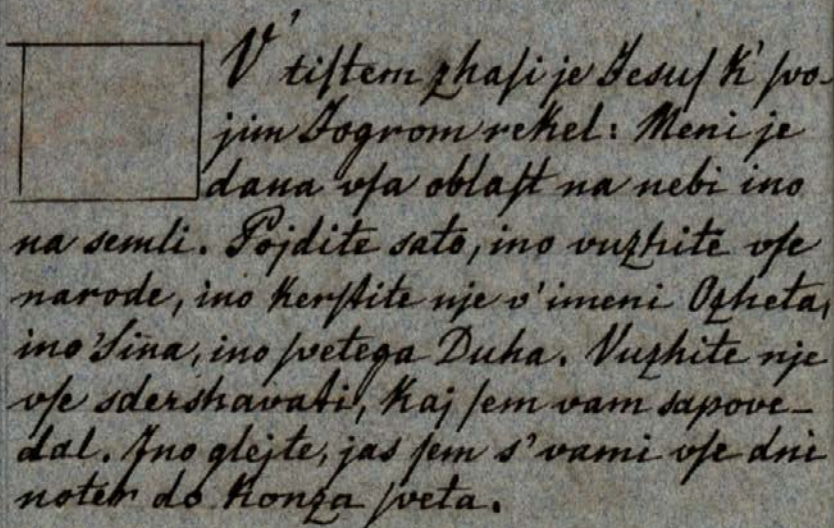 V' tiſtem zhaſi je Jesuſ k' ſvo-
jim Jogrom rekel: Meni je
dana vſa oblaſt na nebi ino
na semli. Pojdite sato, ino vuzhite vſe
narode, ino kerſtite nje v' imeni Ozheta,
ino Sina, ino ſvetega Duha. Vuzhite nje
vſe sdershavati, kaj ſem vam sapove-
dal. Ino glejte, jas ſem s' vami vſe dni
noter do konza ſveta.